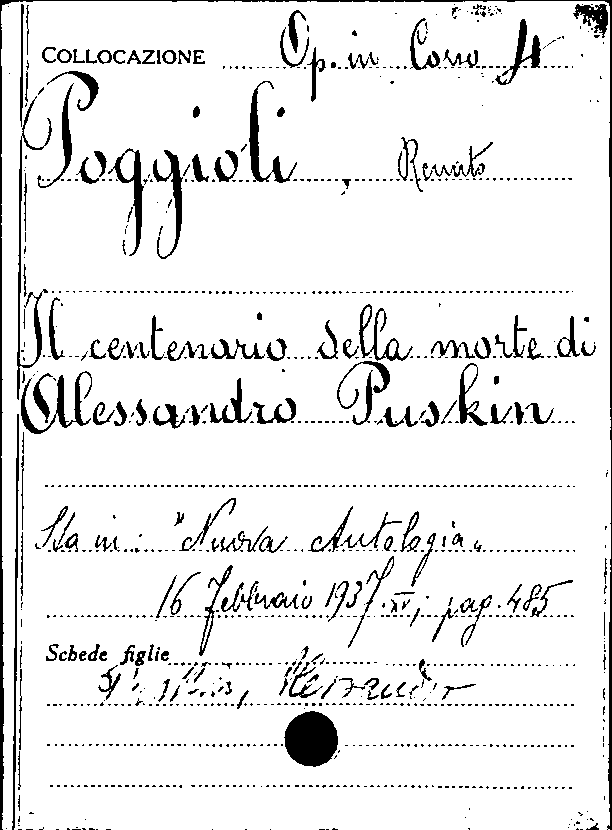 COLLOCAZIONE Op. in Corso 4
Poggioli, Renato
Il centenario della morte di
Alessandro Puskin
Sta in: "Nuova Antologia"
16 Febbraio 1937. XV; pag. 485
Schede figlie
Alessandro